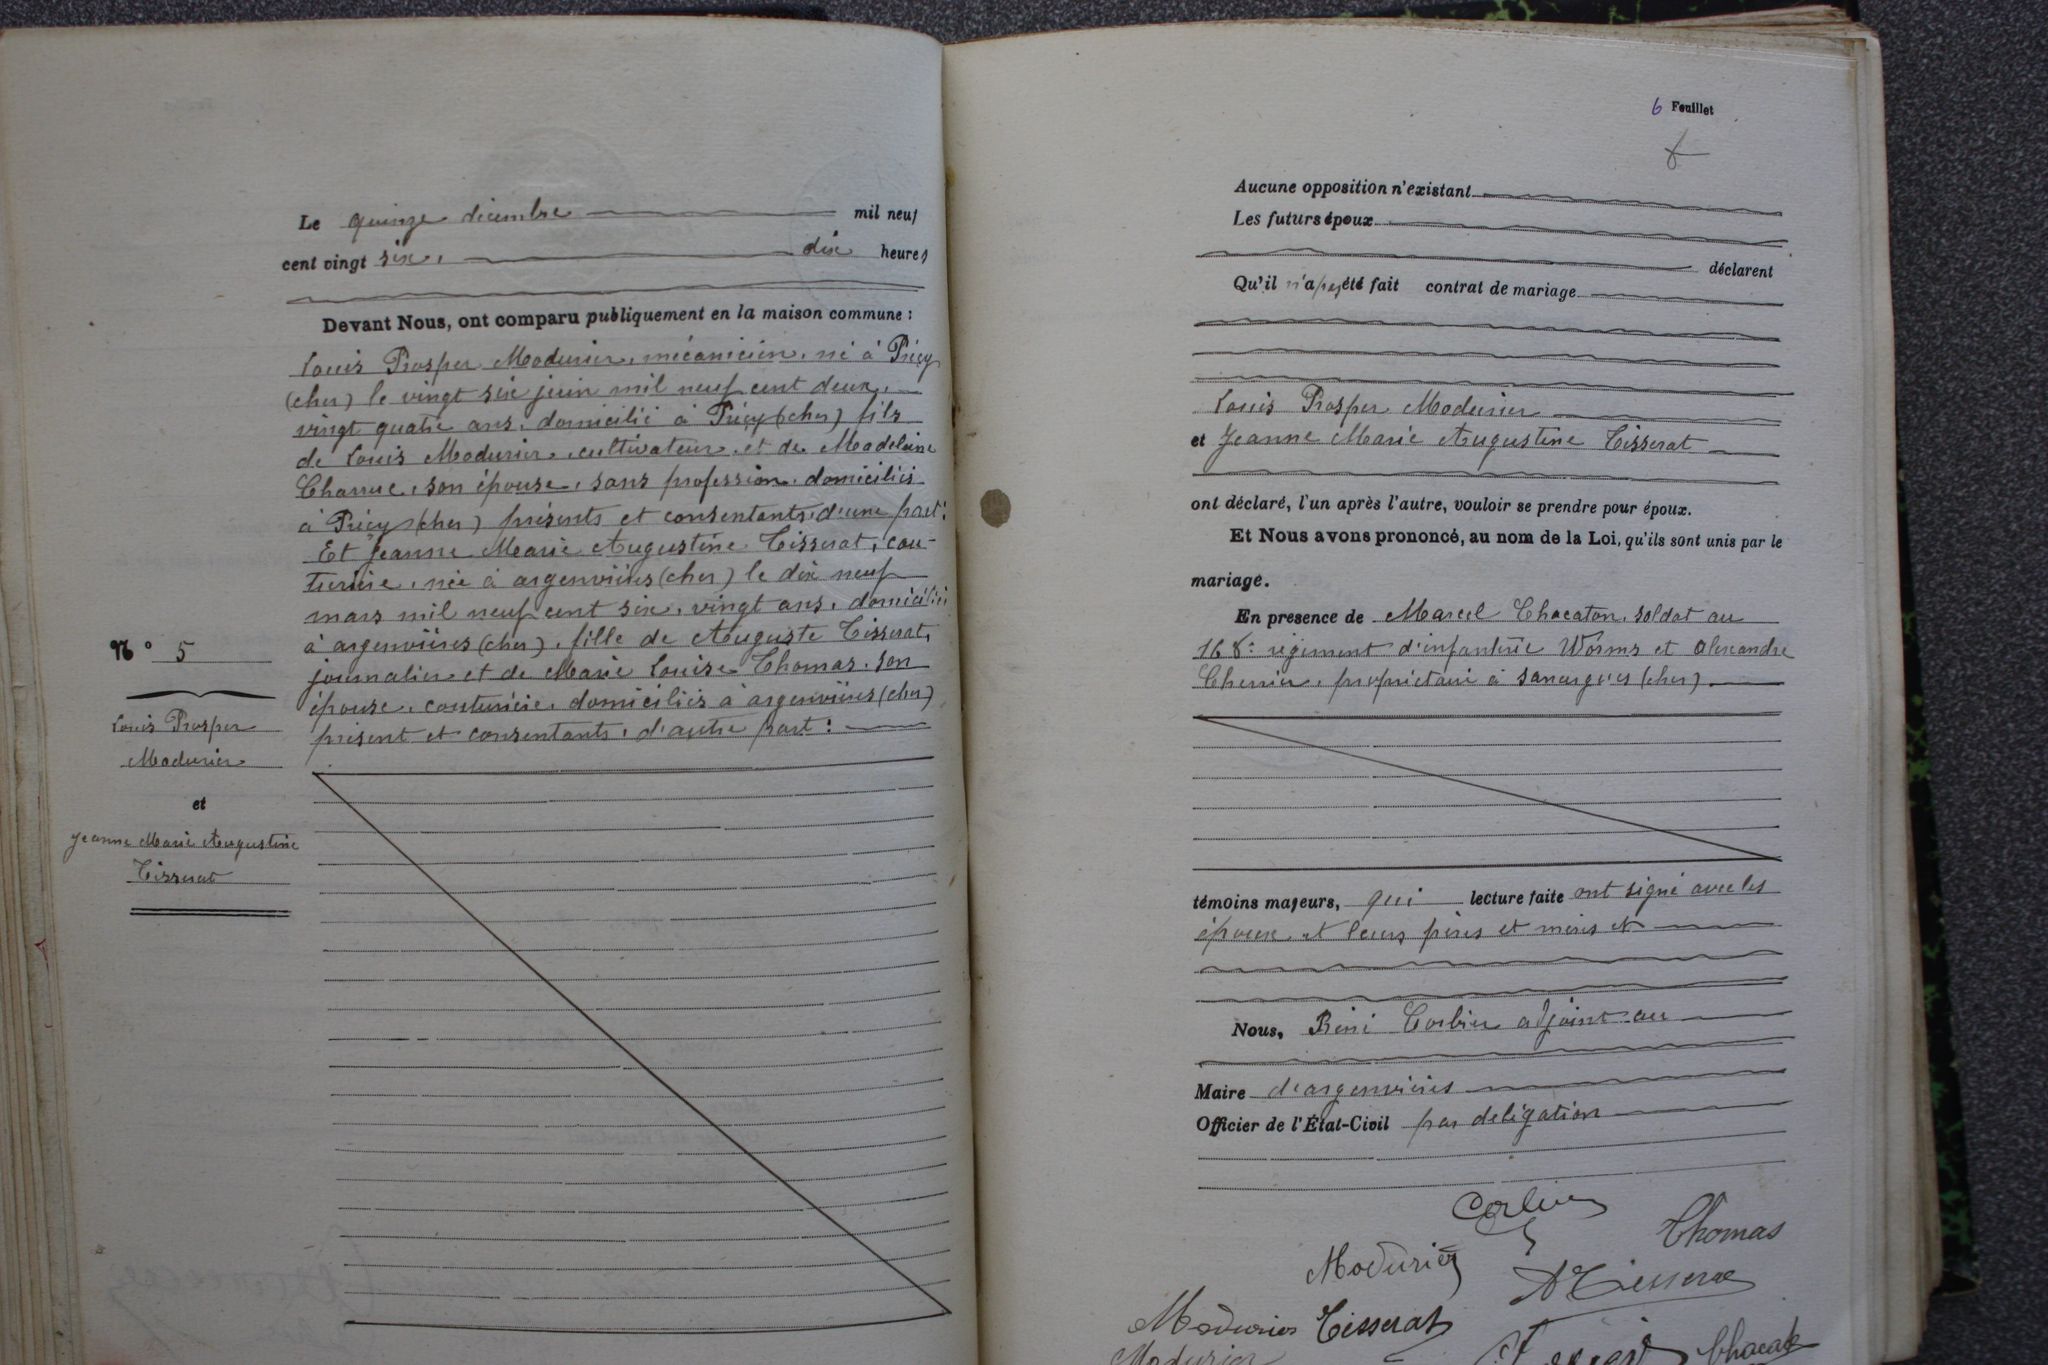 Le quinze décembre mil neuf
cent vingt six, dix heures
Devant Nous, ont comparu publiquement en la maison commune :
Louis Prosper Modurier, mécanicien, né à Précy
(cher) le vingt six juin mil neuf cent deux,
vingt quatre ans, domicilié à Précy (cher) fils
de Louis Modurier, cultivateur, et de Madeleine
Charrue, son épouse, sans profession, domiciliés
à Précy (cher) présents et consentants, d'une part :
Et Jeanne Marie Augustine Tisserat, cou-
turière, née à argenvières (cher) le dix neuf
mars mil neuf cent six, vingt ans, domiciliée
à argenvières (cher), fille de Auguste Tisserat,
journalier et de Marie Louise Thomas, son
épouse, couturière, domiciliés à argenvières (cher)
présent et consentants, d'autre part :
N° 5
Louis Prosper
Modurier
et
Jeanne Marie Augustine
Tisserat
6 Feuillet
Aucune opposition n'existant
Les futurs époux
déclarent
Qu'il n'a pas été fait contrat de mariage
Louis Prosper Modurier
et Jeanne Marie Augustine Tisserat
ont déclaré, l'un après l'autre, vouloir se prendre pour époux.
Et Nous avons prononcé, au nom de la Loi, qu'ils sont unis par le
mariage.
En presence de Marcel Chacaton, soldat au
168e régiment d'infanterie Worms et alexandre
Cherrier, propriétaire à Sancergues (cher).
témoins majeurs, qui lecture faite ont signé avec les
époux et leurs pères et mères et
Nous, Réné Corbier adjoint au
Maire d'argenvières
Officier de l'État-Civil par deligation
Corbier
Thomas
Modurier
A Tisserat
Modurier Tisserat
Modurier Chacat